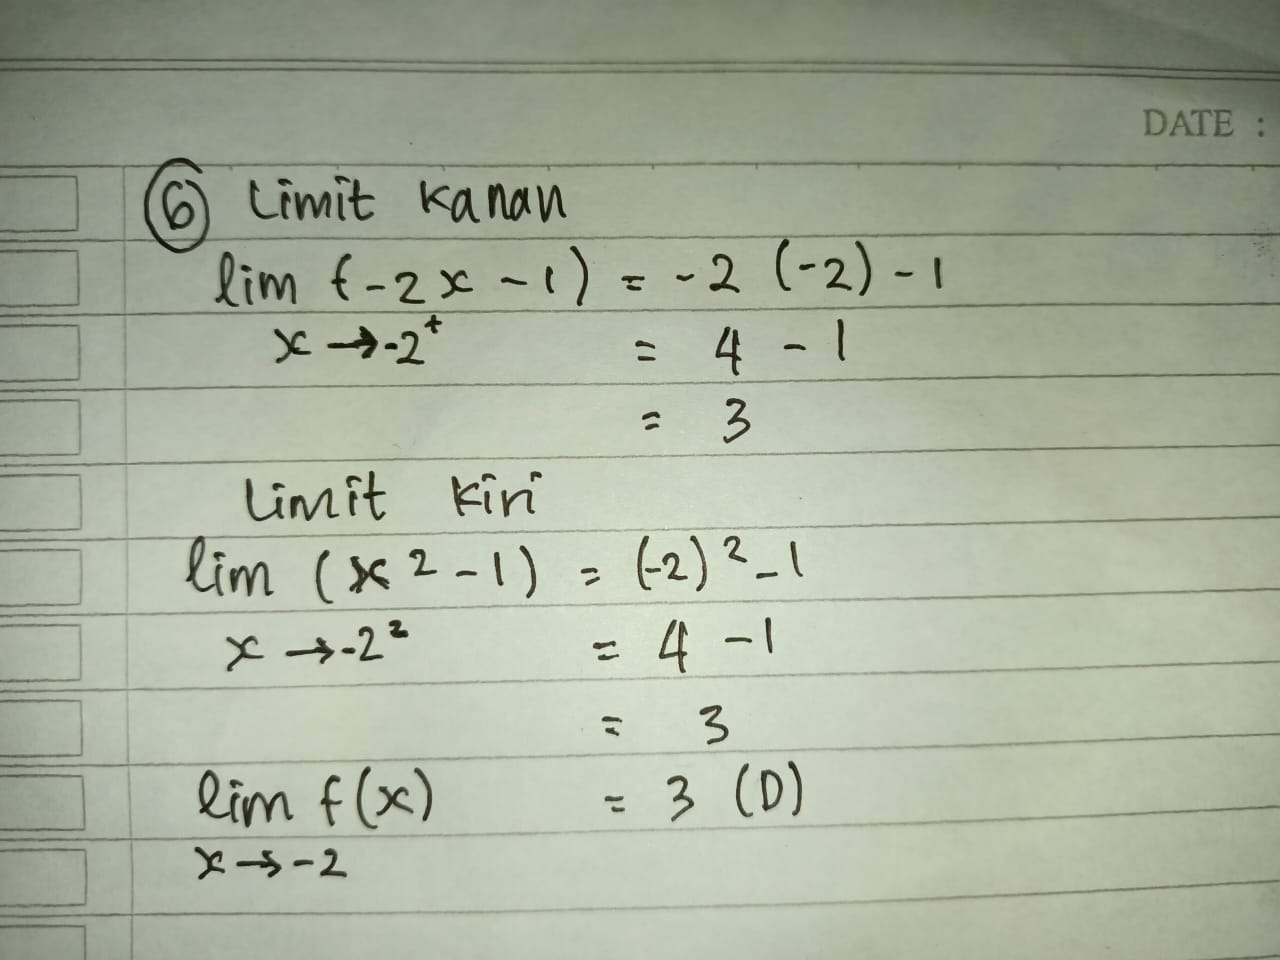 DATE :
⑥ Limit Kanan
lim (-2x - 1) = -2 (-2) - 1
x → -2⁺ = 4 - 1
= 3
Limit Kiri
lim (x² - 1) = (-2)² - 1
x → -2² = 4 - 1
= 3
lim f(x) = 3 (D)
x → -2